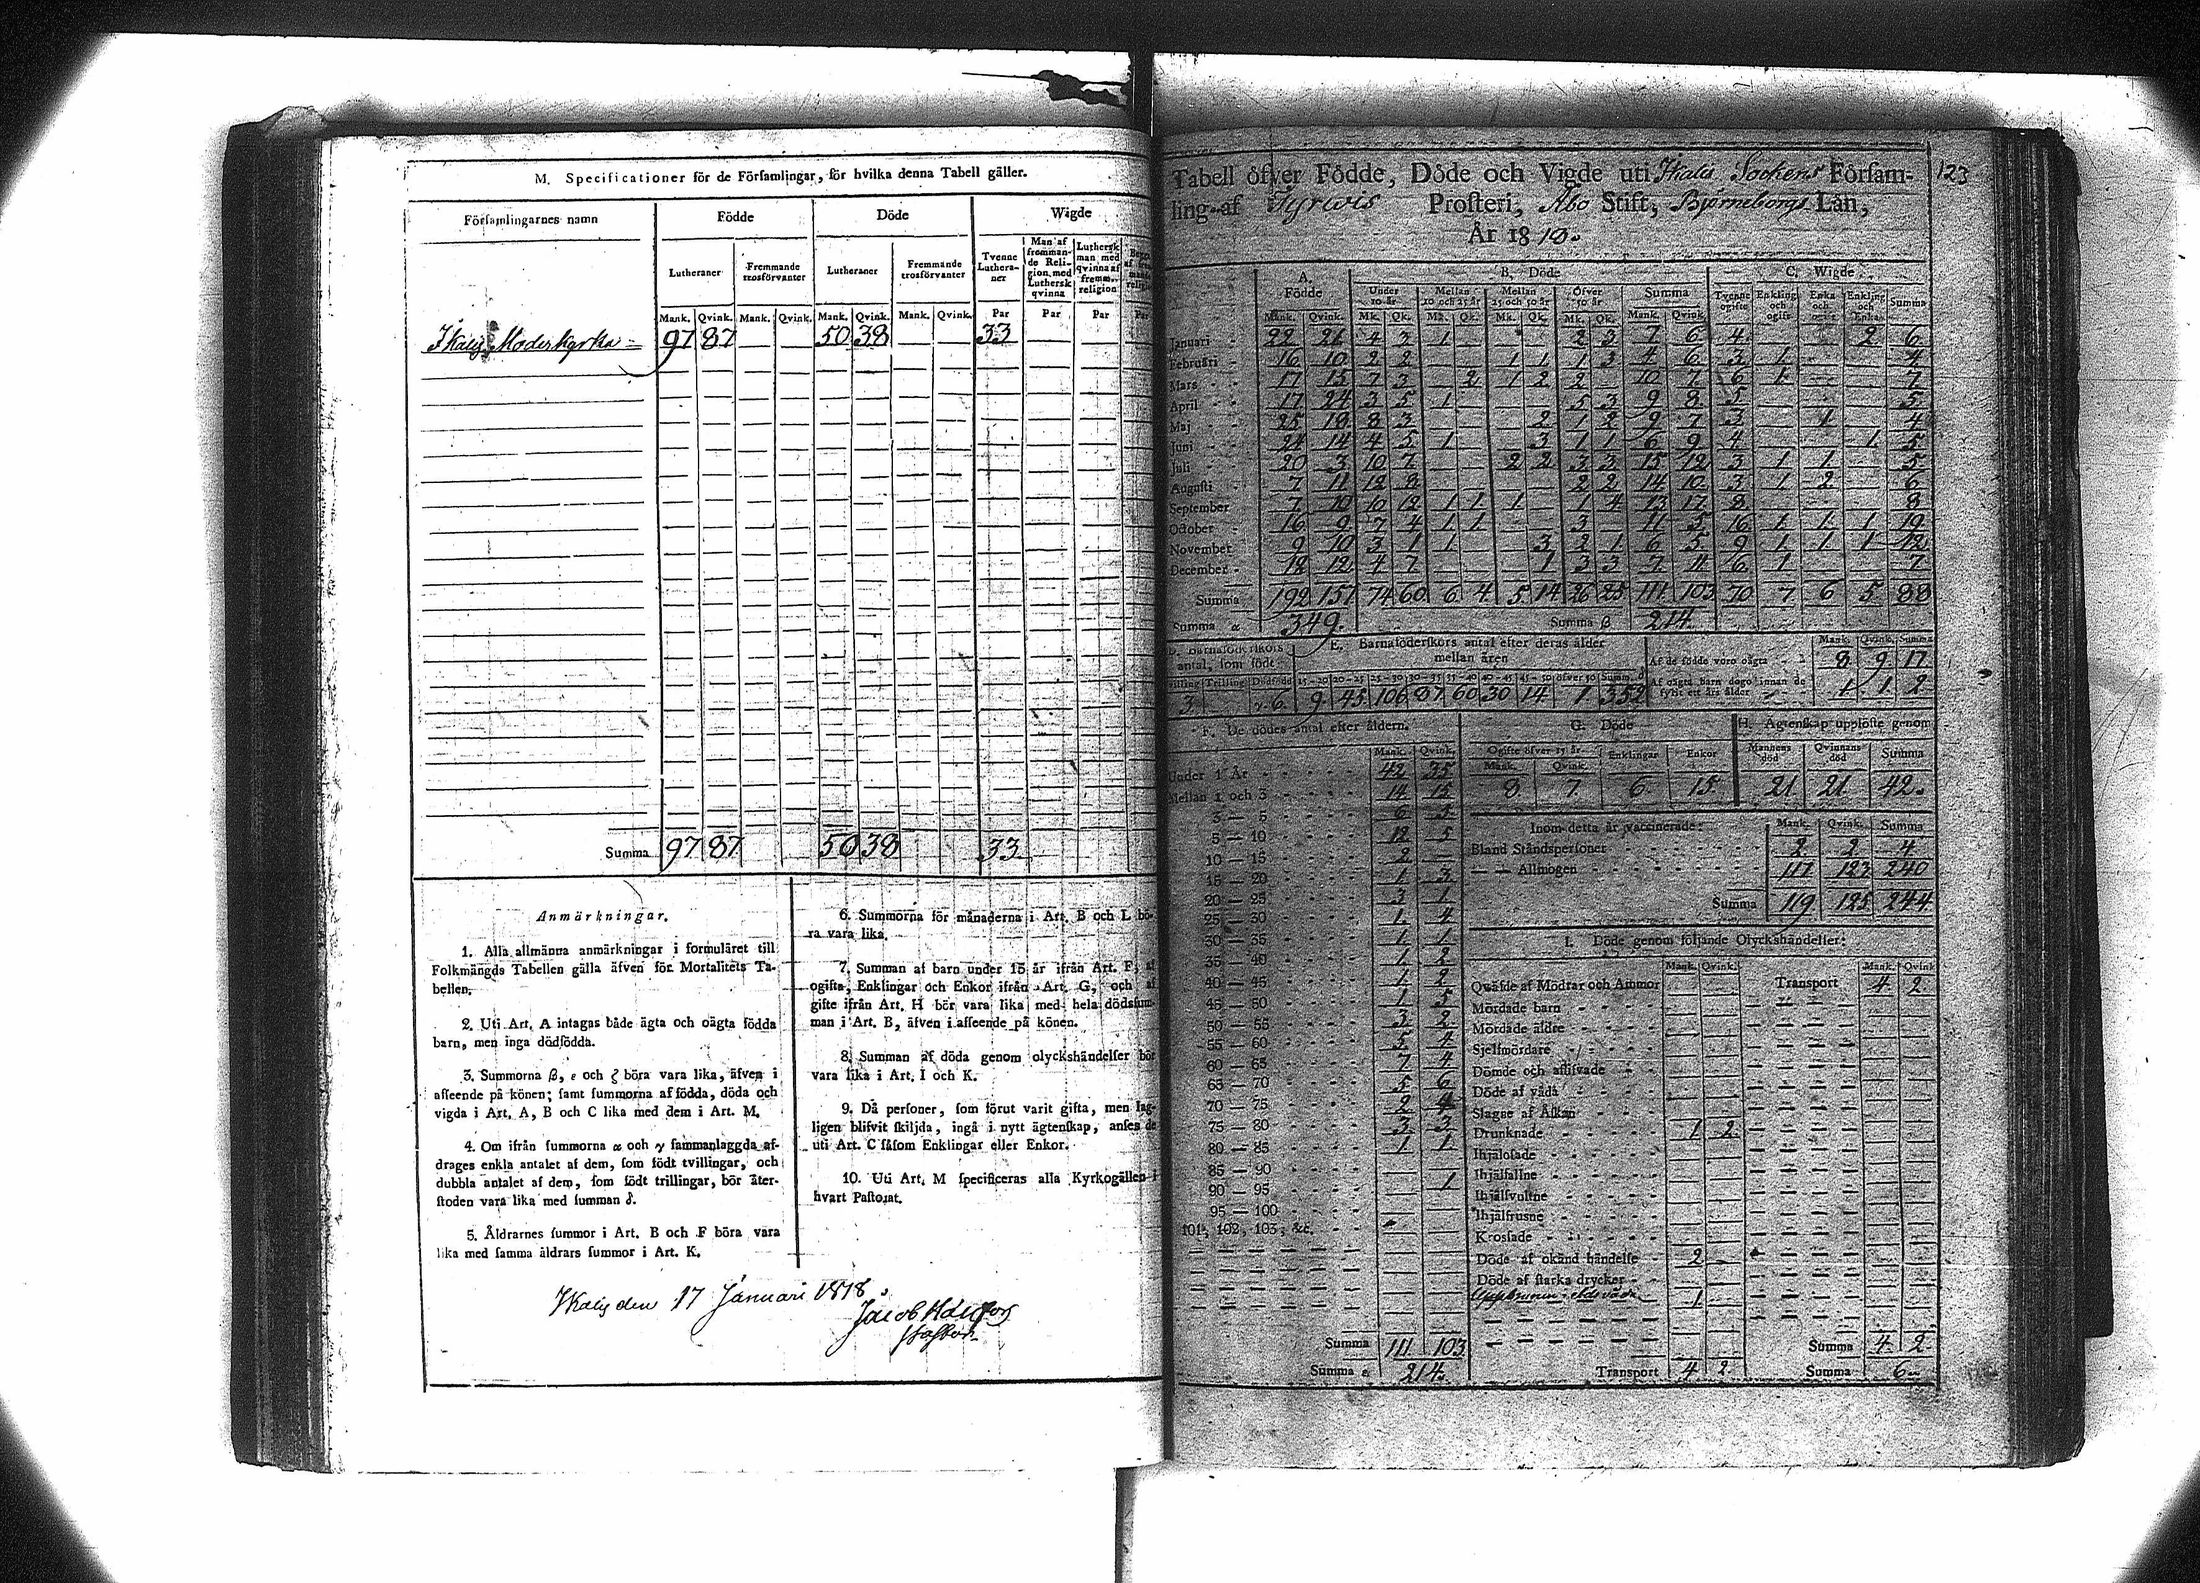 M. Specificationer för de Församlingar, för hvilka denna Tabell gäller.
Församlingarnes namn Födde Döde Wigde
Lutheraner Fremmande trosförvanter Lutheraner Fremmande trosförvanter Tvenne Lutheraner Man af fremmande Religion med Luthersk qvinna Luthersk man med qvinna af fremm. religion
Mank. Qvink. Mank. Qvink. Mank. Qvink. Mank. Qvink. Par Par Par Par
Ikalis Moderkyrka 97 87 50 38 33
Summa 97 87 50 38 33
Anmärkningar.
1. Alla allmänna anmärkningar i formuläret till
Folkmängds Tabellen gälla äfven för Mortalitets Ta-
bellen.
2. Uti Art. A intagas både ägta och oägta födda
barn, men inga dödfödda.
3. Summorna β, ε och ζ böra vara lika, äfven i
afseende på könen; samt summorna af födda, döda och
vigda i Art. A, B och C lika med dem i Art. M.
4. Om ifrån summorna α och γ sammanlaggda af-
drages enkla antalet af dem, som födt tvillingar, och
dubbla antalet af dem, som födt trillingar, bör åter-
stoden vara lika med summan δ.
5. Åldrarnes summor i Art. B och F böra vara
lika med samma åldrars summor i Art. K.
6. Summorna för månaderna i Art. B och L bö-
ra vara lika.
7. Summan af barn under 15 år ifrån Art. F, af
ogifta, Enklingar och Enkor ifrån Art. G, och af
gifte ifrån Art. H bör vara lika med hela dödssum-
man i Art. B, äfven i afseende på könen.
8. Summan af döda genom olyckshändelser bör
vara lika i Art. I och K.
9. Då personer, som förut varit gifta, men lag-
ligen blifvit skiljda, ingå i nytt ägtenskap, anses de
uti Art. C såsom Enklingar eller Enkor.
10. Uti Art. M specificeras alla Kyrkogällen i
hvart Pastorat.
Ikalis den 17 Januari 1818.
Jacob
Tabell öfver Födde, Döde och Vigde uti Ikalis Sockens Församling 123
ling af Tyrwis Prosteri, Åbo Stift, Björneborgs Län,
År 1818.
A. Födde B. Döde C. Wigde
Under 10 år Mellan 10 och 25 år Mellan 25 och 50 år Öfver 50 år Summa Tvenne ogifte Enkling och ogift Enka och ogift Enkling och Enka Summa
Mank. Qvink. Mk. Qk. Mk. Qk. Mk. Qk. Mk. Qk. Mank. Qvink.
Januari 22 21 4 3 1 2 3 7 6 4 2 6
Februari 16 10 2 2 1 1 1 3 4 6 3 1 4
Mars 17 15 7 3 2 1 2 2 10 7 6 1 7
April 17 24 3 5 1 5 3 9 8 5 5
Maj 25 18 8 3 2 1 2 9 7 3 1 4
Juni 24 14 4 5 1 3 1 1 6 9 4 1 5
Juli 20 3 10 7 2 2 3 3 15 12 3 1 1 5
Augusti 7 11 12 8 2 2 14 10 3 1 2 6
September 7 10 10 12 1 1 1 1 4 13 17 8 8
October 16 9 7 4 1 1 3 11 5 16 1 1 1 19
November 9 10 3 1 1 3 2 1 6 5 9 1 1 1 12
December 18 12 4 7 1 3 3 7 11 6 1 7
Summa 192 157 74 60 6 4 5 14 26 25 111 103 70 7 6 5 88
Summa α 349. Summa β 214
D. Barnaföderskors antal, som födt E. Barnaföderskors antal efter deras ålder mellan åren
Mank. Qvink. Summa
Af de födde voro oägta 8 9 17
Af oägta barn dogo innan de fyllt ett års ålder 1 1 2
Tvilling Trilling Dödfödd 15-20 20-25 25-30 30-35 35-40 40-45 45-50 öfver 50 Summ. δ
3 γ 6 9 45 106 87 60 30 14 1 352
F. De dödes antal efter åldern. G. Döde H. Ägtenskap upplöste genom
Mank. Qvink. Ogifte öfver 15 år Enklingar Enkor Mannens död Qvinnans död Summa
Mank. Qvink.
8 7 6 15 21 21 42
Under 1 År 42 35
Mellan 1 och 3 14 15
3 — 5 6 5
5 — 10 12 5
10 — 15 2
15 — 20 1 3
20 — 25 3 1
25 — 30 1 4
30 — 35 1 1
35 — 40 1 2
40 — 45 1 2
45 — 50 1 5
50 — 55 3 2
55 — 60 5 4
60 — 65 7 4
65 — 70 5 6
70 — 75 2 4
75 — 80 3 3
80 — 85 1 1
85 — 90
90 — 95 1
95 — 100
101, 102, 103, &c.
Summa 111 103
Summa ε 214.
Inom detta år vaccinerade: Mank. Qvink. Summa
Bland Ståndspersoner 2 2 4
— — Allmogen 117 123 240
Summa 119 125 244
I. Döde genom följande Olyckshändelser:
Mank. Qvink. Mank. Qvink.
Qwäfde af Mödrar och Ammor Transport 4 2
Mördade barn
Mördade äldre
Sjelfmördare
Dömde och aflifvade
Döde af våda
Slagne af Åskan
Drunknade 1 2
Ihjälosade
Ihjälfallne
Ihjälsvultne
Ihjälfrusne
Krossade
Döde af okänd händelse 2
Döde af starka drycker
1
Summa 4 2
Transport 4 2 Summa 6